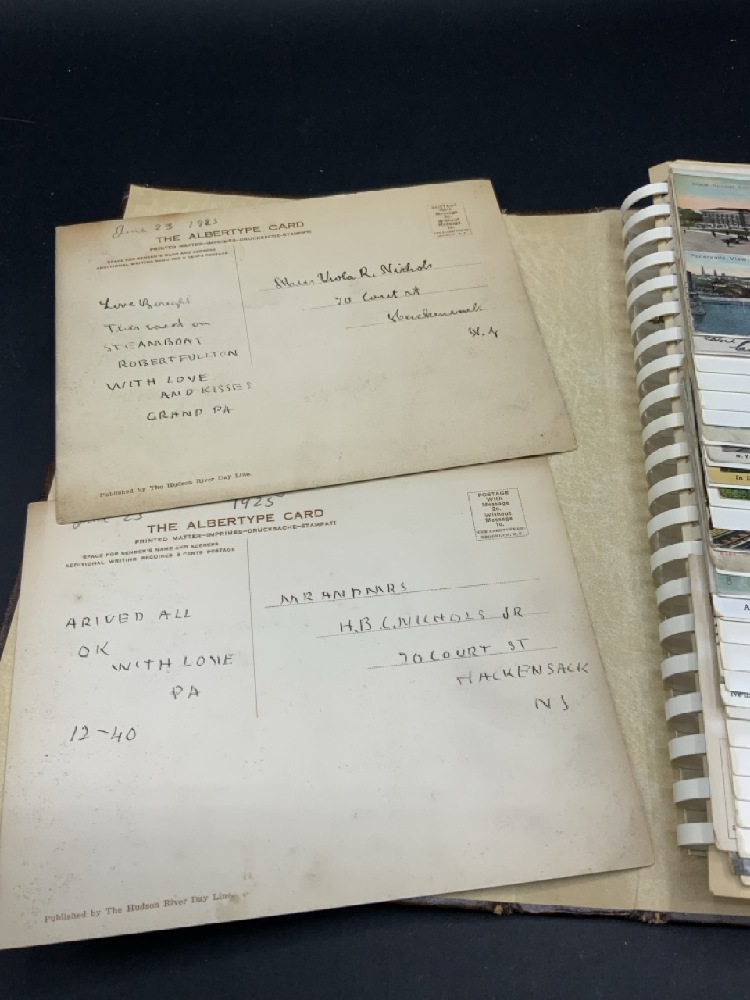 June 23 1925
THE ALBERTYPE CARD
PRINTED MATTER-IMPRIMES-DRUCKSACHE-STAMPATI
SPACE FOR SENDER'S NAME AND ADDRESS
ADDITIONAL WRITING REQUIRES 2 CENTS POSTAGE
POSTAGE
With
Message
2c.
Without
Message
1c.
Miss Viola R. Nichols
70 Court st
Hackensack
N. J
STEAMBOAT
ROBERT FULLTON
WITH LOVE
AND KISSES
GRAND PA
Published by The Hudson River Day Line.
June 23 1925
THE ALBERTYPE CARD
PRINTED MATTER-IMPRIMES-DRUCKSACHE-STAMPATI
SPACE FOR SENDER'S NAME AND ADDRESS
ADDITIONAL WRITING REQUIRES 2 CENTS POSTAGE
POSTAGE
With
Message
2c.
Without
Message
1c.
ARIVED ALL
OK
WITH LOVE
PA
12-40
MR AND MRS
H.B.C. NICHOLS JR
70 COURT ST
HACKENSACK
NJ
Published by The Hudson River Day Line.